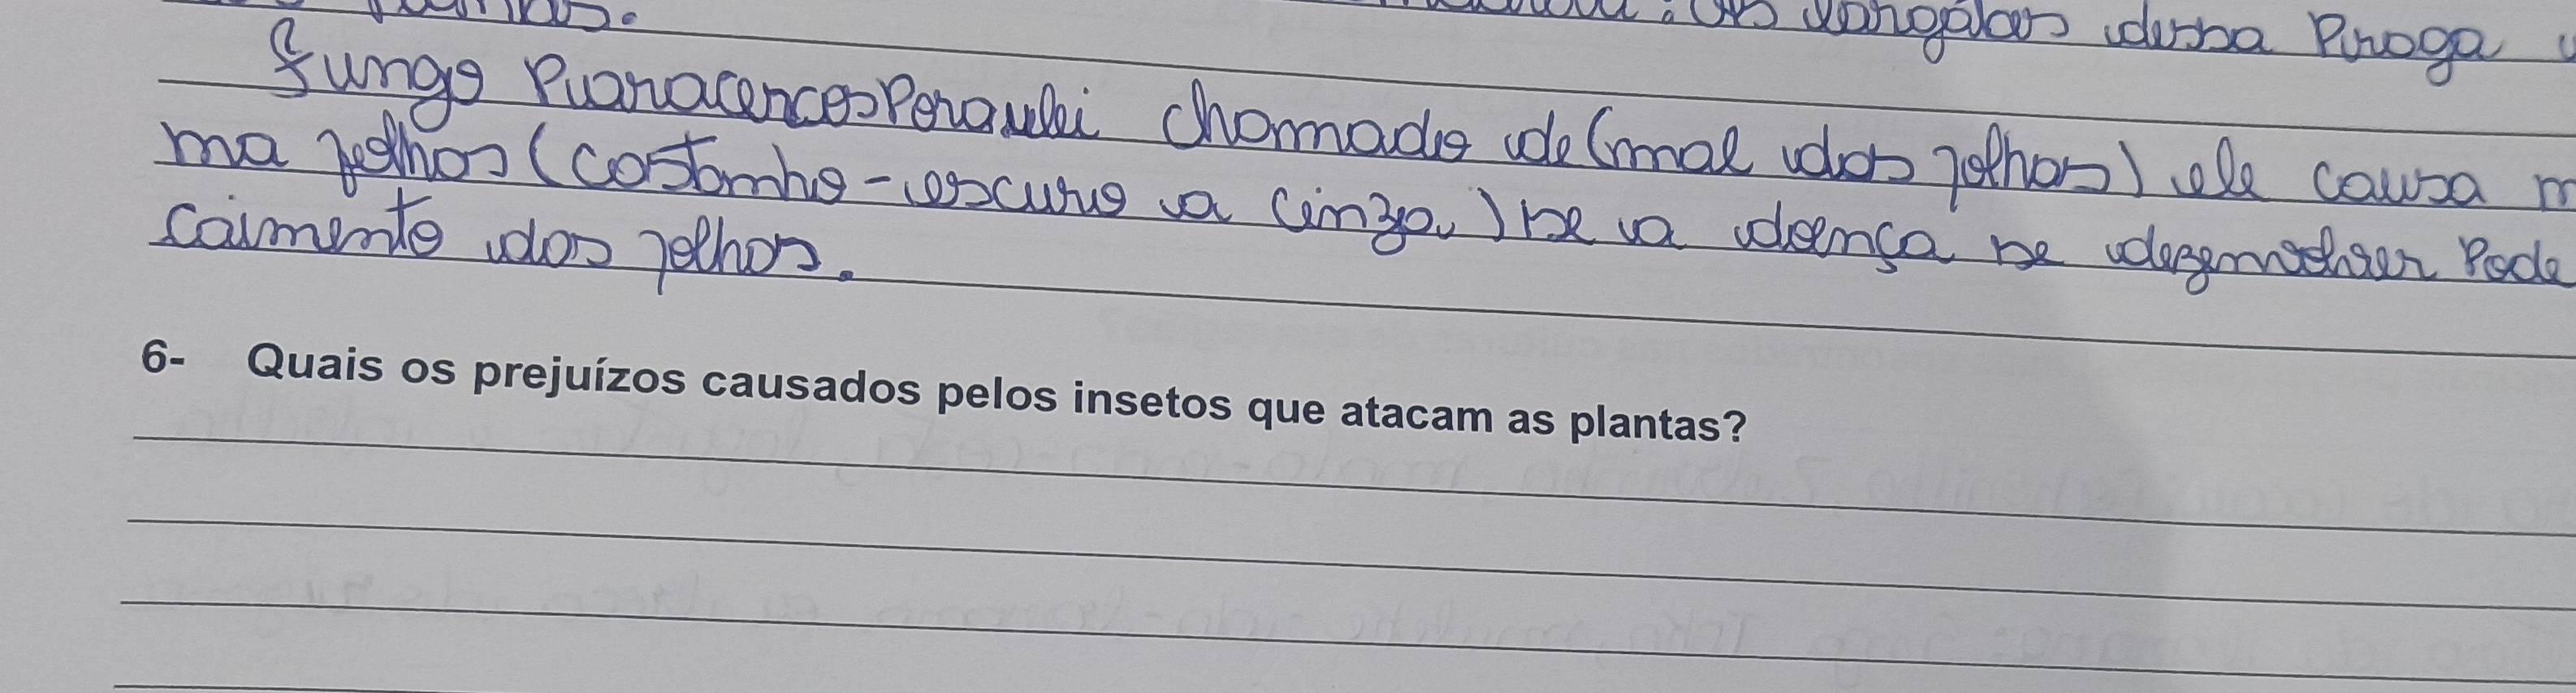 dessa Piroga
fungo chamado de (mal das folhas) ele causa m
na folhas (castanho-escuro a cinza) se a doença se desenvolver Pode
caimento das folhas.
6- Quais os prejuízos causados pelos insetos que atacam as plantas?